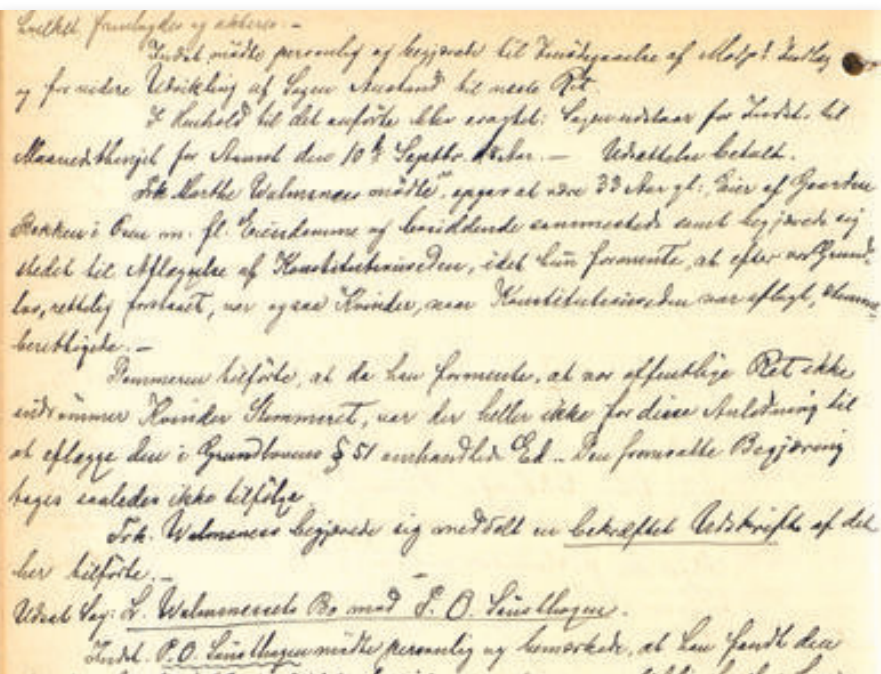 hvilket fremlagdes og akteres. –
Indst. mødte personlig og begjærede til Imødegaaelse af Modp! Indlæg
og for videre Udvikling af Sagen Anstand til næste Ret.
I Henhold til det anførte blev eragtet: Sagen udstaar for Indst. til
Maanedsthinget for Aamot den 10de Septbr. d. Aar. – Udsættelse betalt.
Frk. Marthe Walmsnæss mødte, opgav at være 33 Aar gl:, Eier af Gaarden
Bakken i Øren m. fl. Eiendomme og besiddende sammesteds samt begjærede sig
stedet til Aflæggelse af Konstitutionseden, idet hun formente, at efter vor Grund-
lov, rettelig forstaaet, var ogsaa Kvinder, naar Konstitutionseden var aflagt, stemme-
berettigede. –
Dommeren tilførte, at da han formente, at vor offentlige Ret ikke
indrømmer Kvinder Stemmeret, var der heller ikke for disse Anledning til
at aflægge den i Grundlovens § 51 omhandlede Ed. – Den fremsatte Begjæring
tages saaledes ikke tilfølge.
Frk. Walmsnæss begjærede sig meddelt en bekræftet Udskrift af det
her tilførte. –
Udsat Sag: L. Walmsnæss Bo mod P. O.
Indst. P. O. mødte personlig og bemærkede, at han fandt den